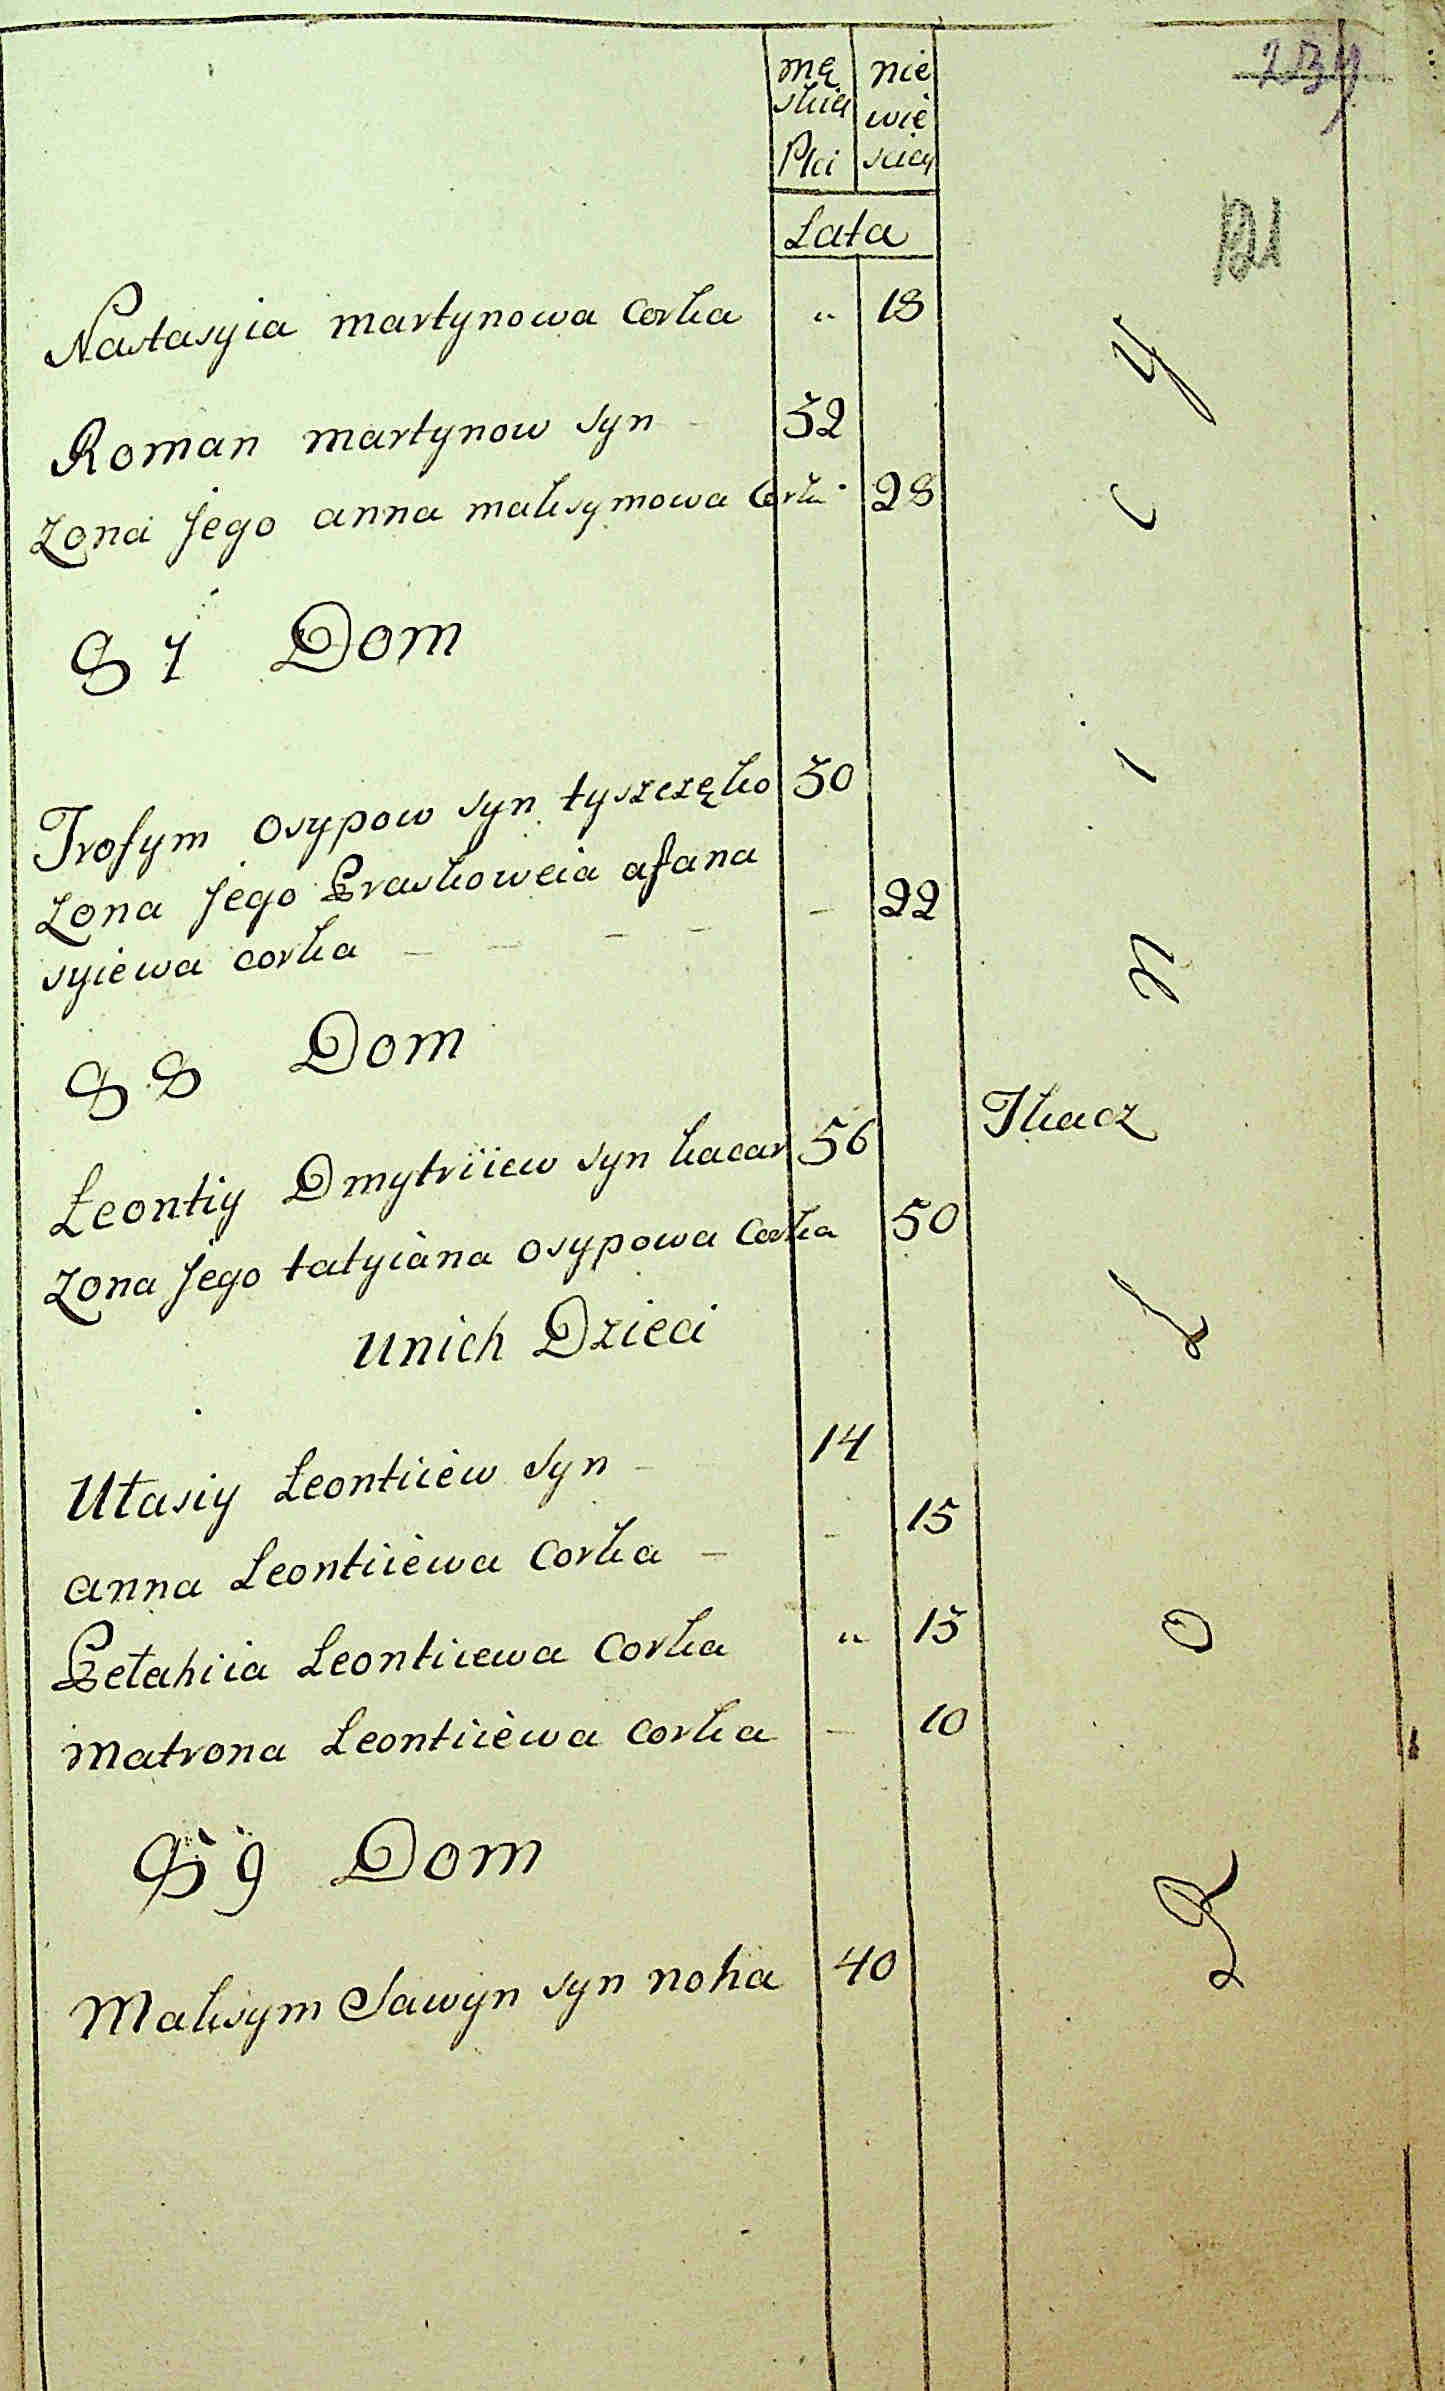 239
mę nie
skiey wie
Płci sciey
Lata
Nastasyia martynowa Corka " 18
Roman martynow syn 32
zona jego anna maksymowa Corka 28
87 Dom
Trofym osypow syn tyszczęko 30
zona jego Praskoweia afana
syiewa corka - - - - - 22
88 Dom
Leontiy Dmytriiew syn kacar 56 Tkacz
zona jego tatyiàna osypowa Corka 50
unich Dzieci
Ułasiy Leontiièw syn - 14
anna Leontiièwa Corka - - 15
Pełahiia Leontiiewa Corka " 13
Matrona Leontiièwa Corka - 10
89 Dom
Maksym Sawyn syn noha 40
R o l n i c y